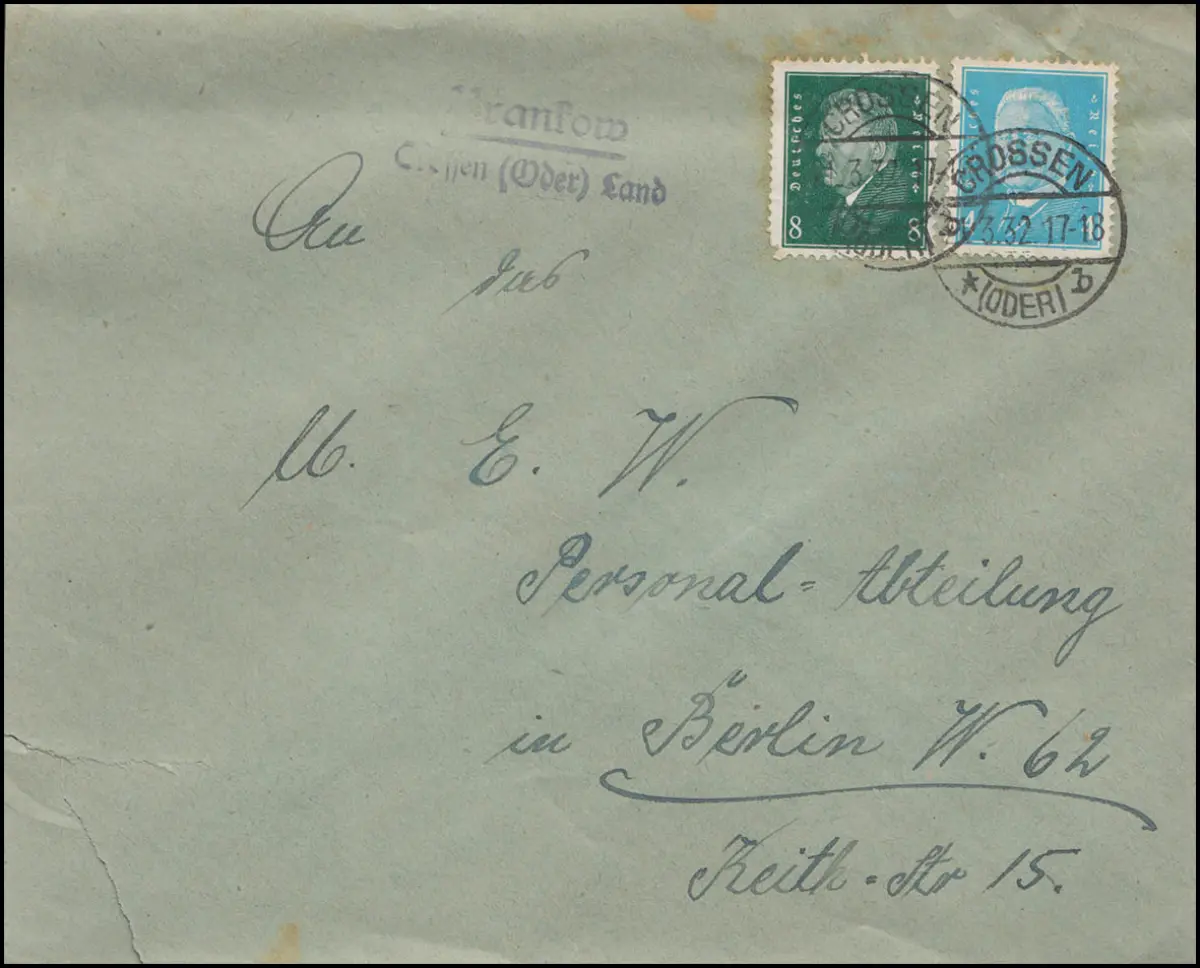 Crossen (Oder) Land
Deutsches Reich
8 8
Reich
4
CROSSEN
3.32 17-
(ODER)
CROSSEN
3.32 17-18
* (ODER) b
An
das
M. E. W.
Personal=Abteilung
in Berlin W. 62
Keith-Str 15.